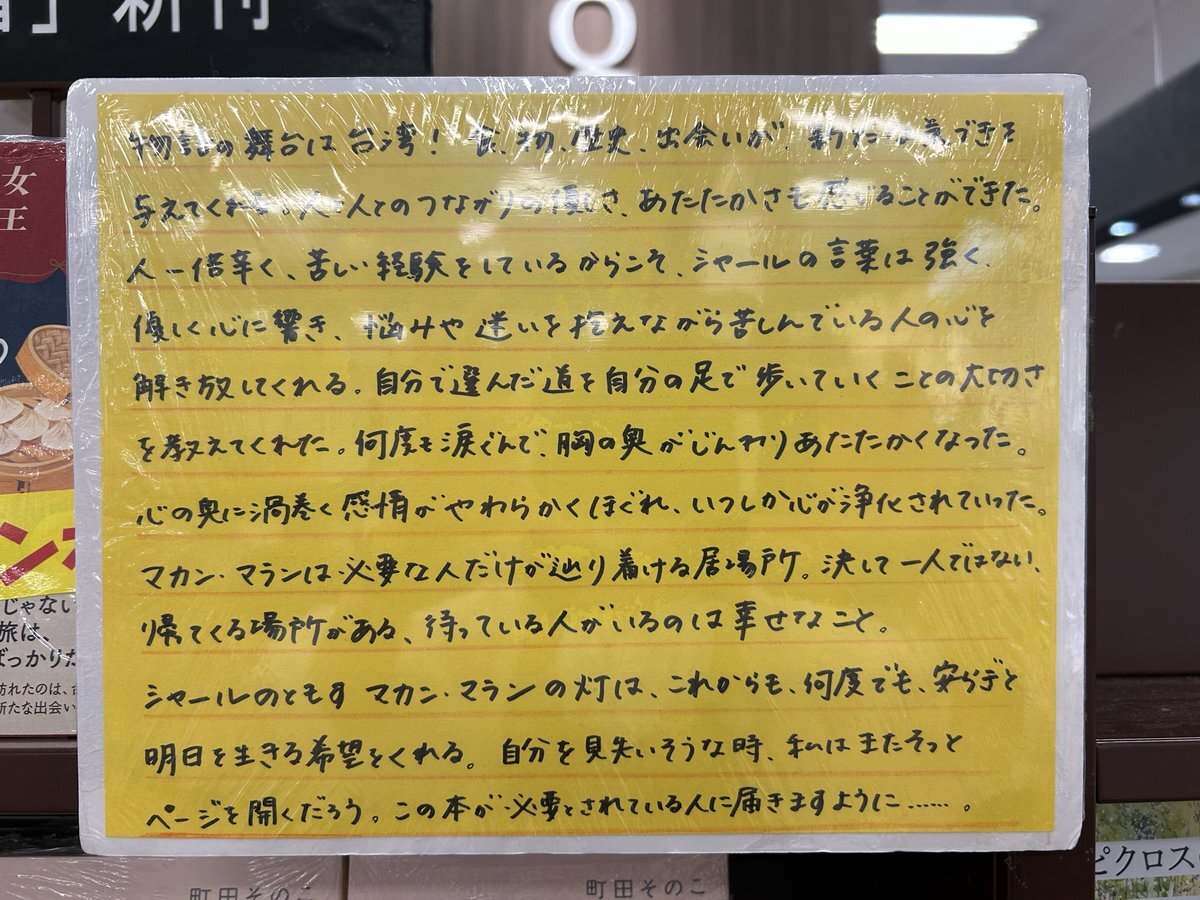 」新刊
物語の舞台は台湾！食、物、歴史、出会いが、新たな気づきを
与えてくれる。人と人とのつながりの優しさ、あたたかさも感じることができた。
人一倍辛く、苦しい経験をしているからこそ、シャールの言葉は強く、
優しく心に響き、悩みや迷いを抱えながら苦しんでいる人の心を
解き放してくれる。自分で選んだ道を自分の足で歩いていくことの大切さ
を教えてくれた。何度も涙ぐんで、胸の奥がじんわりあたたかくなった。
心の奥に渦巻く感情がやわらかくほぐれ、いつしか心が浄化されていった。
マカン・マランは必要な人だけが辿り着ける居場所。決して一人ではない、
帰てくる場所がある、待っている人がいるのは幸せなこと。
シャールのともす マカン・マランの灯は、これからも、何度でも、安らぎと
明日を生きる希望をくれる。自分を見失いそうな時、私はまたそっと
ページを開くだろう。この本が必要とされている人に届きますように……。
女王
ンガ
じゃない
旅は、
ばっかりだ
訪れたのは、台
新たな出会い
町田そのこ
町田そのこ
ピクロス